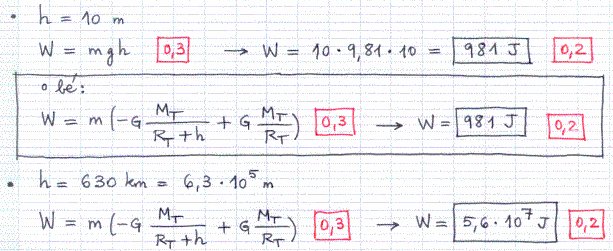 • h = 10 m
W = mgh 0,3 → W = 10 · 9,81 · 10 = 981 J 0,2
o bé:
W = m (-G M_T/(R_T + h) + G M_T/R_T) 0,3 → W = 981 J 0,2
• h = 630 km = 6,3 · 10⁵ m
W = m (-G M_T/(R_T + h) + G M_T/R_T) 0,3 → W = 5,6 · 10⁷ J 0,2